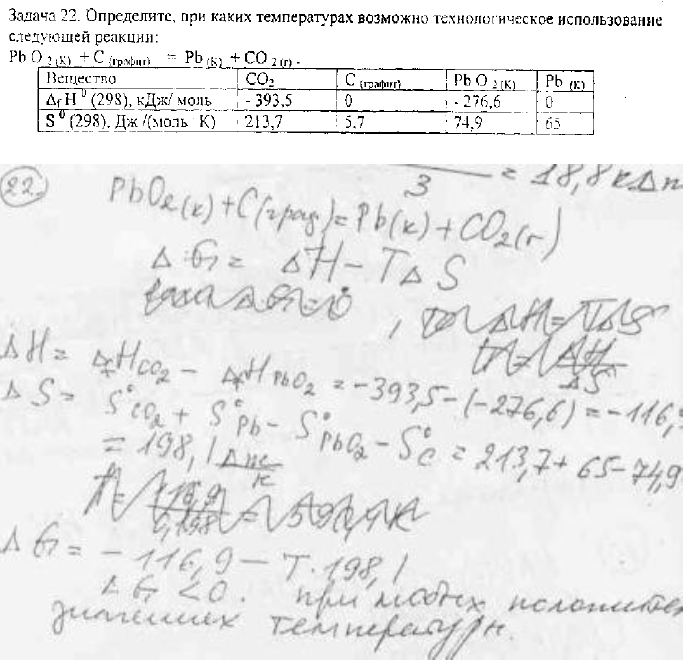 Задача 22. Определите, при каких температурах возможно технологическое использование
следующей реакции:
Pb O 2 (К) + C (графит) = Pb (К) + CO 2 (г) .
Вещество CO₂ C (графит) Pb O 2 (К) Pb (К)
ΔfH⁰ (298), кДж/ моль - 393,5 0 - 276,6 0
S⁰ (298), Дж /(моль К) 213,7 5,7 74,9 65
3 = 18,8 кДж
22. PbO₂(к) + C(граф) = Pb(к) + CO₂(г)
ΔG = ΔH – TΔS
если ΔG = 0, то ΔH = TΔS
T = ΔH/ΔS
ΔH = ΔfH CO₂ – ΔfH PbO₂ = –393,5 – (–276,6) = –116,9
ΔS = S° CO₂ + S° Pb – S° PbO₂ – S° C = 213,7 + 65 – 74,9
= 198,1 Дж/К
ΔG = –116,9 – T·198,1
ΔG < 0. при любых положител
значениях температуры.